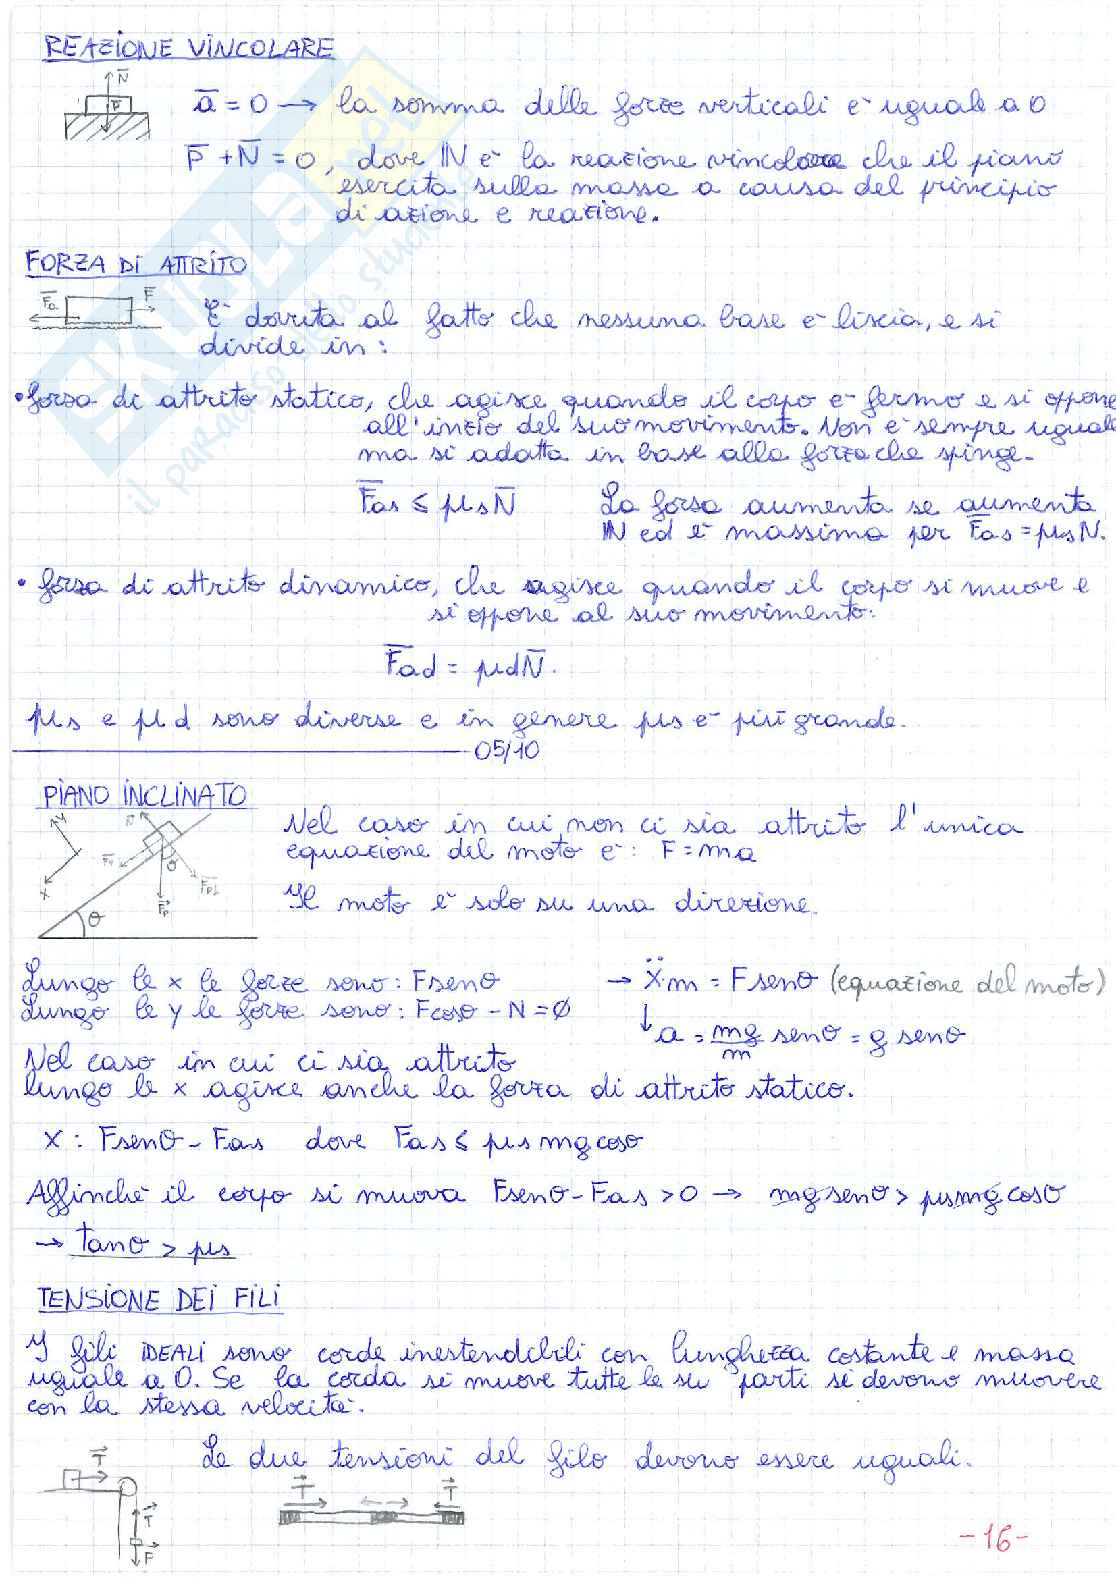 REAZIONE VINCOLARE
N
P
a = 0 → la somma delle forze verticali è uguale a 0
P + N = 0, dove N è la reazione vincolare che il piano
esercita sulla massa a causa del principio
di azione e reazione.
FORZA DI ATTRITO
Fa
F
È dovuta al fatto che nessuna base è liscia, e si
divide in:
• forza di attrito statico, che agisce quando il corpo è fermo e si oppone
all'inizio del suo movimento. Non è sempre uguale
ma si adatta in base alla forza che spinge.
Fas ≤ μs N
La forza aumenta se aumenta
N ed è massima per Fas = μsN.
• forza di attrito dinamico, che agisce quando il corpo si muove e
si oppone al suo movimento:
Fad = μdN.
μs e μd sono diverse e in genere μs è più grande.
05/10
PIANO INCLINATO
y
x
θ
θ
Fp
Nel caso in cui non ci sia attrito l'unica
equazione del moto è: F = ma
Il moto è solo su una direzione.
Lungo le x le forze sono: Fsenθ → ẍ·m = Fsenθ (equazione del moto)
Lungo le y le forze sono: Fcosθ - N = Ø
↓ a = mg/m senθ = g senθ
Nel caso in cui ci sia attrito
lungo le x agisce anche la forza di attrito statico.
x : Fsenθ - Fas dove Fas ≤ μs mg cosθ
Affinchè il corpo si muova Fsenθ - Fas > 0 → mg senθ > μs mg cosθ
→ tanθ > μs
TENSIONE DEI FILI
I fili IDEALI sono corde inestendibili con lunghezza costante e massa
uguale a 0. Se la corda si muove tutte le su parti si devono muovere
con la stessa velocità.
Le due tensioni del filo devono essere uguali.
T
T
F
T
T
-16-
SKUOLA.net
il paradiso dello studente